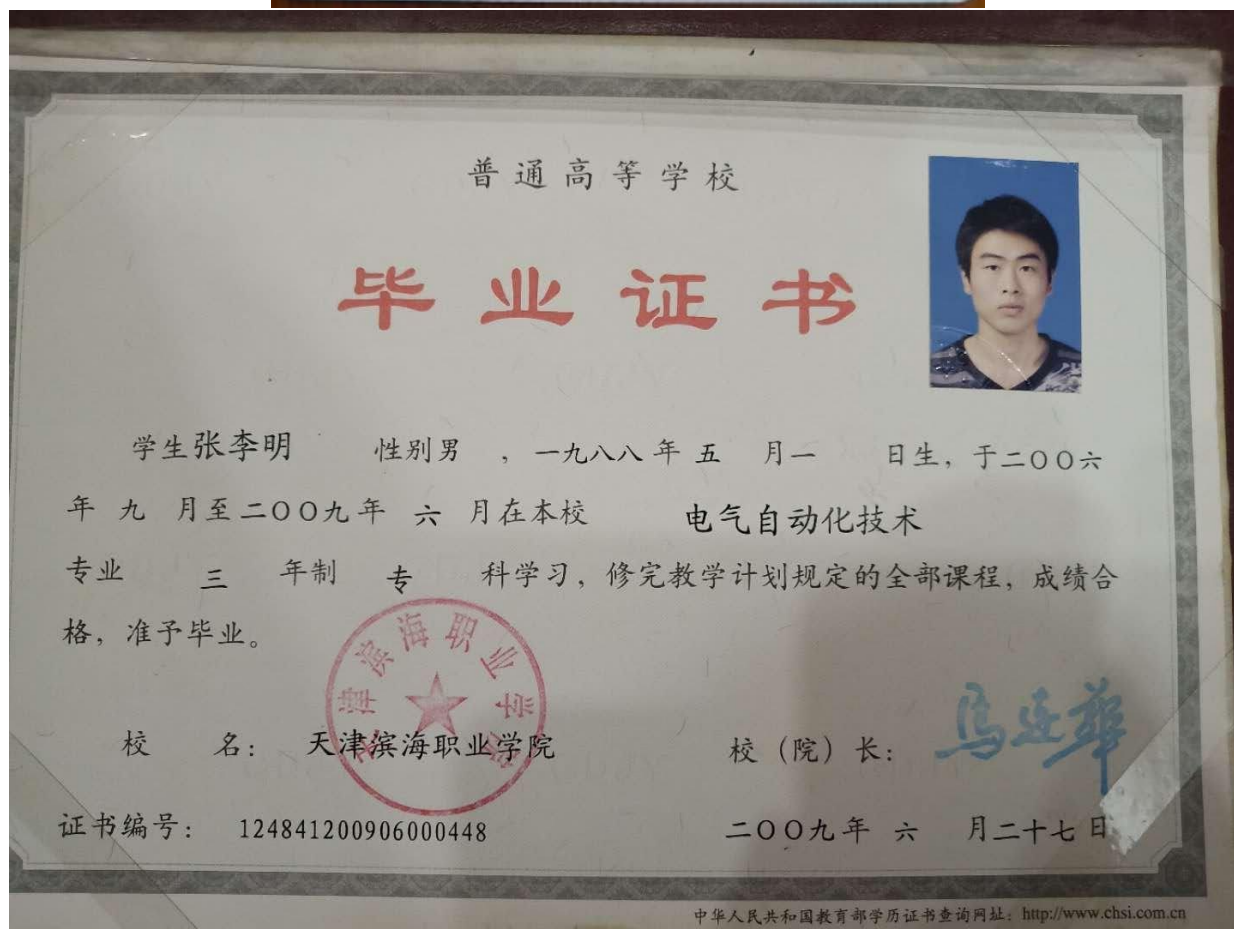 普通高等学校
毕业证书
学生张李明 性别男 , 一九八八年 五 月一 日生, 于二〇〇六
年 九 月至二〇〇九年 六 月在本校 电气自动化技术
专业 三 年制 专 科学习, 修完教学计划规定的全部课程, 成绩合
格, 准予毕业。
天津滨海职业学院
校 名: 天津滨海职业学院
校(院)长: 马连华
证书编号: 124841200906000448
二〇〇九年 六 月二十七日
中华人民共和国教育部学历证书查询网址: http://www.chsi.com.cn